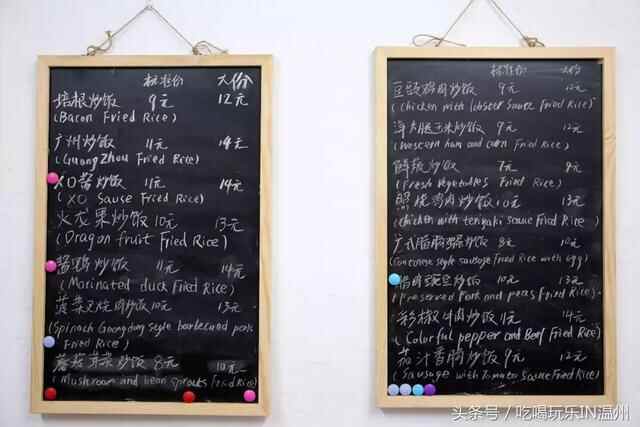 标准价 大份
培根炒饭 9元 12元
(Bacon Fried Rice)
广州炒饭 11元 14元
(GuangZhou Fried Rice)
XO酱炒饭 11元 14元
(XO Sause Fried Rice)
火龙果炒饭 10元 13元
(Dragon fruit Fried Rice)
酱鸭炒饭 11元 14元
(Marinated duck Fried Rice)
菠菜叉烧肉炒饭 10元 13元
(Spinach Guangdong style barbecued pork
Fried Rice)
蘑菇芽菜炒饭 8元 10元
(Mushroom and bean sprouts Fried Rice)
标准价 大份
豆豉鸡肉炒饭 9元 12元
(Chicken with lobster Sauce Fried Rice)
洋火腿玉米炒饭 9元 12元
(Western ham and corn Fried Rice)
鲜蔬炒饭 7元 9元
(Fresh vegetables Fried Rice)
照烧鸡肉炒饭 10元 13元
(Chicken with teriyaki Sauce Fried Rice)
广式腊肠鸡蛋炒饭 8元 10元
(Cantonese style sausage Fried Rice with egg)
腊肉豌豆炒饭 10元 13元
(Preserved Pork and peas Fried Rice)
彩椒牛肉炒饭 11元 14元
(Colorful pepper and Beef Fried Rice)
茄汁香肠炒饭 9元 12元
(Sausage with Tomato Sauce Fried Rice)
头条号 / 吃喝玩乐IN温州